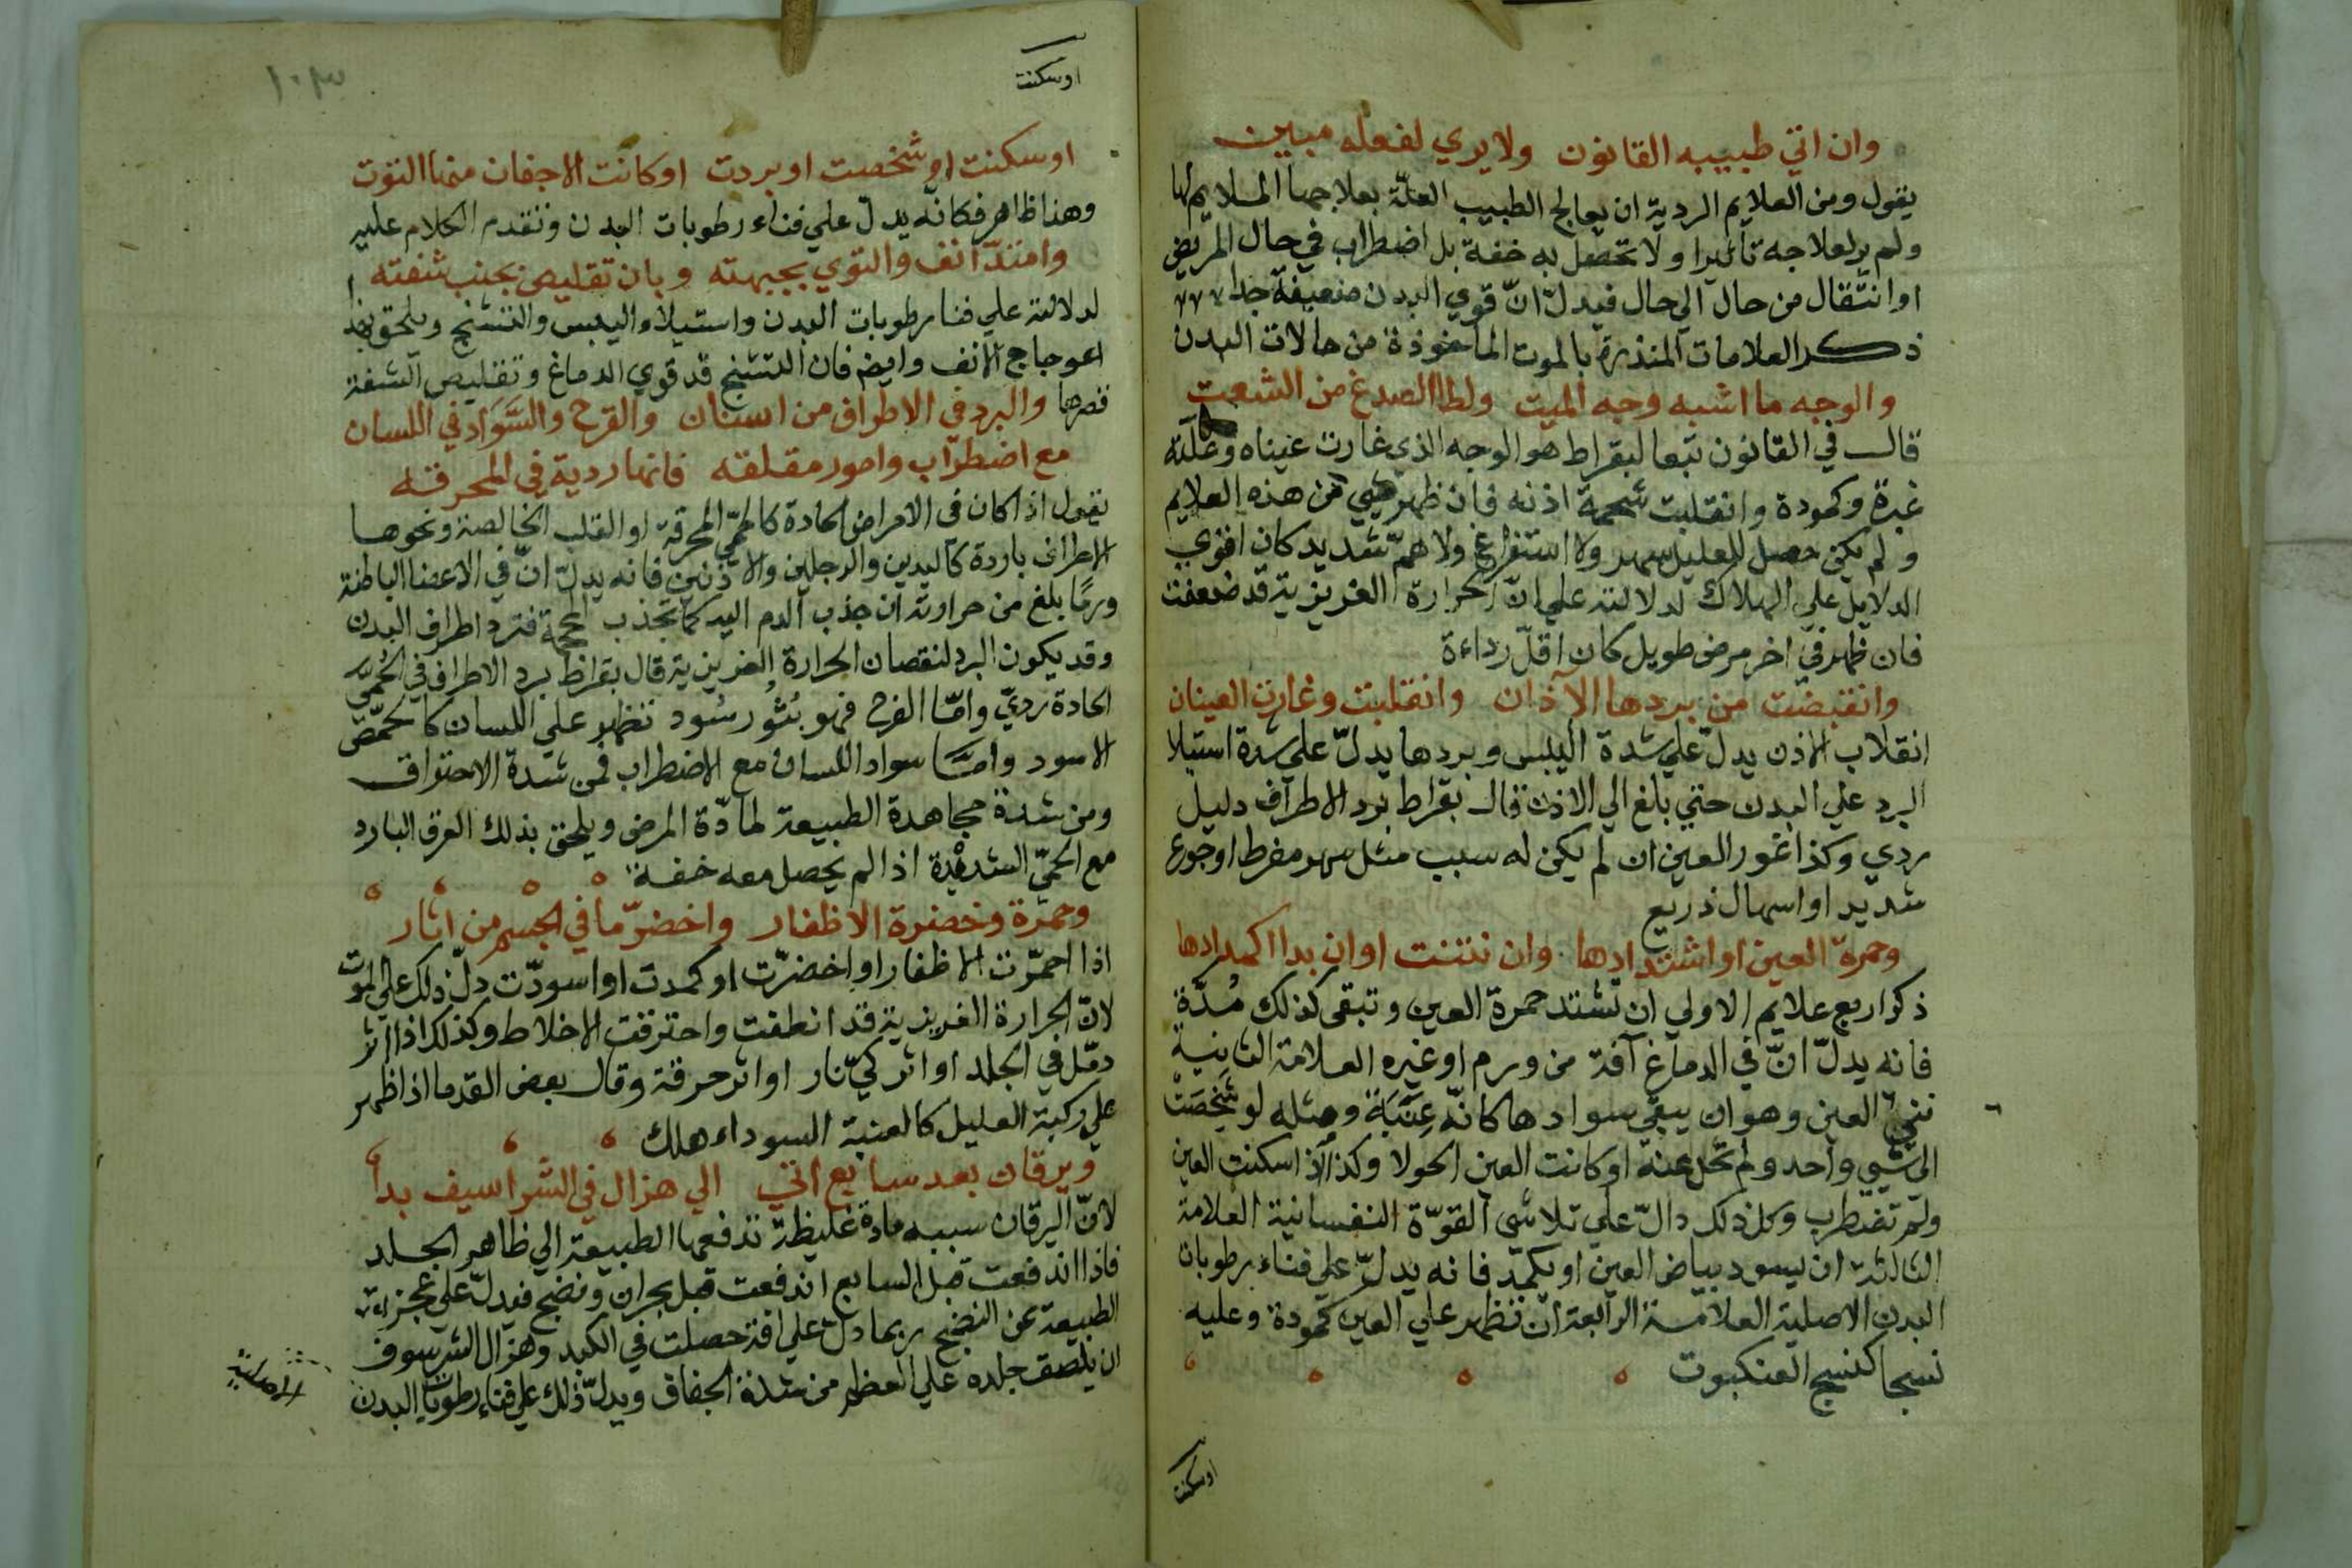 وان اتي طبيبه القانون ولا يري لفعله مبين
يقول ومن العلايم الردية ان يعالج الطبيب العلّة بعلاجها الملايم لها
ولم ير لعلاجه تاثيرا ولا تحصل به خفة بل اضطراب في حال المريض
او انتقال من حال الي حال فيدلّ انّ قوي البدن ضعيفة جدا
ذكر العلامات المنذرة بالموت الماخوذة من حالات البدن
والوجه ما اشبه وجه الميت ولطا الصدغ من الشعت
قال في القانون تبعا لبقراط هو الوجه الذي غارت عيناه وعلته
غبرة وكمودة وانقلبت شحمة اذنه فان ظهر شي من هذه العلايم
ولم يكن حصل للعليل سهر ولا استفراغ ولا همّ شديد كان اقوي
الدلايل علي الهلاك لدلالته علي انّ الحرارة الغريزية قد ضعفت
فان ظهر في اخر مرض طويل كان اقلّ رداءة
وانقبضت من بردها الآذان وانقلبت وغارت العينان
انقلاب الاذن يدلّ علي شدة اليبس وبردها يدلّ علي شدة استيلا
البرد علي البدن حتي بلغ الي الاذن قال بقراط برد الاطراف دليل
ردي وكذا غور العين ان لم يكن له سبب مثل سهر مفرط او جوع
شديد او اسهال ذريع
وحمرة العين او اشتدادها وان نتنت او ان بدا اكمدادها
ذكر اربع علايم الاولي ان تشتد حمرة العين وتبقي كذلك مُدّة
فانه يدلّ انّ في الدماغ آفة من ورم او غيره العلامة الثانية
نتي العين وهو ان يبقي سوادها كانّه عِنَبَة ومثله لو شَخِصَتْ
الي شي واحد ولم تحل عنه او كانت العين الحولا وكذا اذا سكنت العين
ولم تضطرب وكل ذلك دالّ علي تلاشي القوّة النفسانية العلامة
الثالثة ان يسود بياض العين او يكمدّ فانه يدلّ علي فناء رطوبات
البدن الاصلية العلامة الرابعة ان تظهر علي العين كمودة وعليه
نسجا كنسج العنكبوت
او سكنت
١٠٣
او سكنت
او سكنت او شخصت او بردت او كانت الاجفان منها التوت
وهذا ظاهر فكانه يدلّ علي فناء رطوبات البدن وتقدم الكلام عليه
وامتدّ انف والتوي بجبهته وبان تقليص بجنب شفته
لدلالته علي فنا رطوبات البدن واستيلاء اليبس والتشنج ويلحق بهذا
اعوجاج الانف وايضم فان التشنج قد قوي الدماغ وتقليص الشفة
قصرها والبرد في الاطراف من اسنان والقرح والسَّوَاد في اللسان
مع اضطراب وامور مقلقه فانها ردية في المحرقه
يقول اذا كان في الامراض الحادة كالحمّي المحرقة او القلب الخالصة ونحوها
الاطراف باردة كاليدين والرجلين والاذنين فانه يدلّ انّ في الاعضا الباطنة
ورمًا بلغ من حرارته ان جذب الدم اليه كما تجذب المحجمة فتبرد اطراف البدن
وقد يكون البرد لنقصان الحرارة الغريزية قال بقراط برد الاطراف في الحُمّي
الحادة رديّ وامّا القرح فهو بُثُور سُود تظهر علي اللسان كالحمّص
الاسود وامّا سواد اللسان مع الاضطراب فمن شدة الاحتراق
ومن شدة مجاهدة الطبيعة لمادّة المرض ويلحق بذلك العرق البارد
مع الحمّي الشديدة اذا لم يحصل معه خفة
وحمرة وخضرة الاظفار واخضرّ ما في الجسم من اثار
اذا احمرّت الاظفار او اخضرّت او كمدت او اسودّت دلّ ذلك علي الموت
لانّ الحرارة الغريزية قد انطفت واحترقت الاخلاط وكذلك اذا اثر
دمّل في الجلد او اثر كيّ نار او اثر حرقة وقال بعض القدما اذا ظهر
علي ركبة العليل كالعنبة السوداء هلك
ويرقان بعد سابع اتي الي هزال في الشراسيف بدا
لانّ اليرقان سببه مادة غليظة تدفعها الطبيعة الي ظاهر الجلد
فاذا اندفعت قبل السابع اندفعت قبل بحران ونضج فيدلّ علي عجز
الطبيعة عن النضج ربما دلّ علي افة حصلت في الكبد وهزال الشرسوف
ان يلتصق جلده علي العظم من شدة الجفاف ويدلّ ذلك علي فناء رطوبات البدن
الاصلية